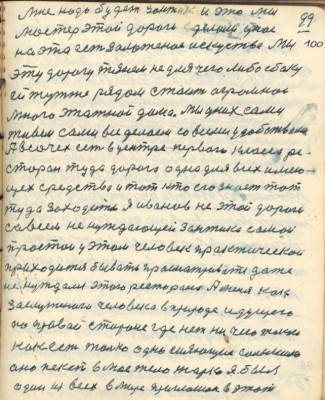 Мне надо будет зонтик и это мы
99
мастер этой дороги
100
на эта есть заложеное искуства Мы
эту дорогу тянем не для чего либо сбоку
ей тут же рядом стоит огромной
много этажной дома. Мы в них сами
живем сами все делаем со всеми удобствами
А во очех есть в центре первого класса ре-
сторан туда дорого одна для всех имею-
щех средства и тот кто его знает тот
туда заходить Я иванов не этой дороги
совсем не нуждающей зонтика самой
простой у этом человек практической
приходится бывать просматривать даже
не нуждам этого ресторана А меня как
заслуженого человека в природе идущего
по правай стороне где нет ни чего такого
как есть только одно сияющие солнышко
оно пекет в мое тело жарко я был
один из всех в мире приглашон в этот